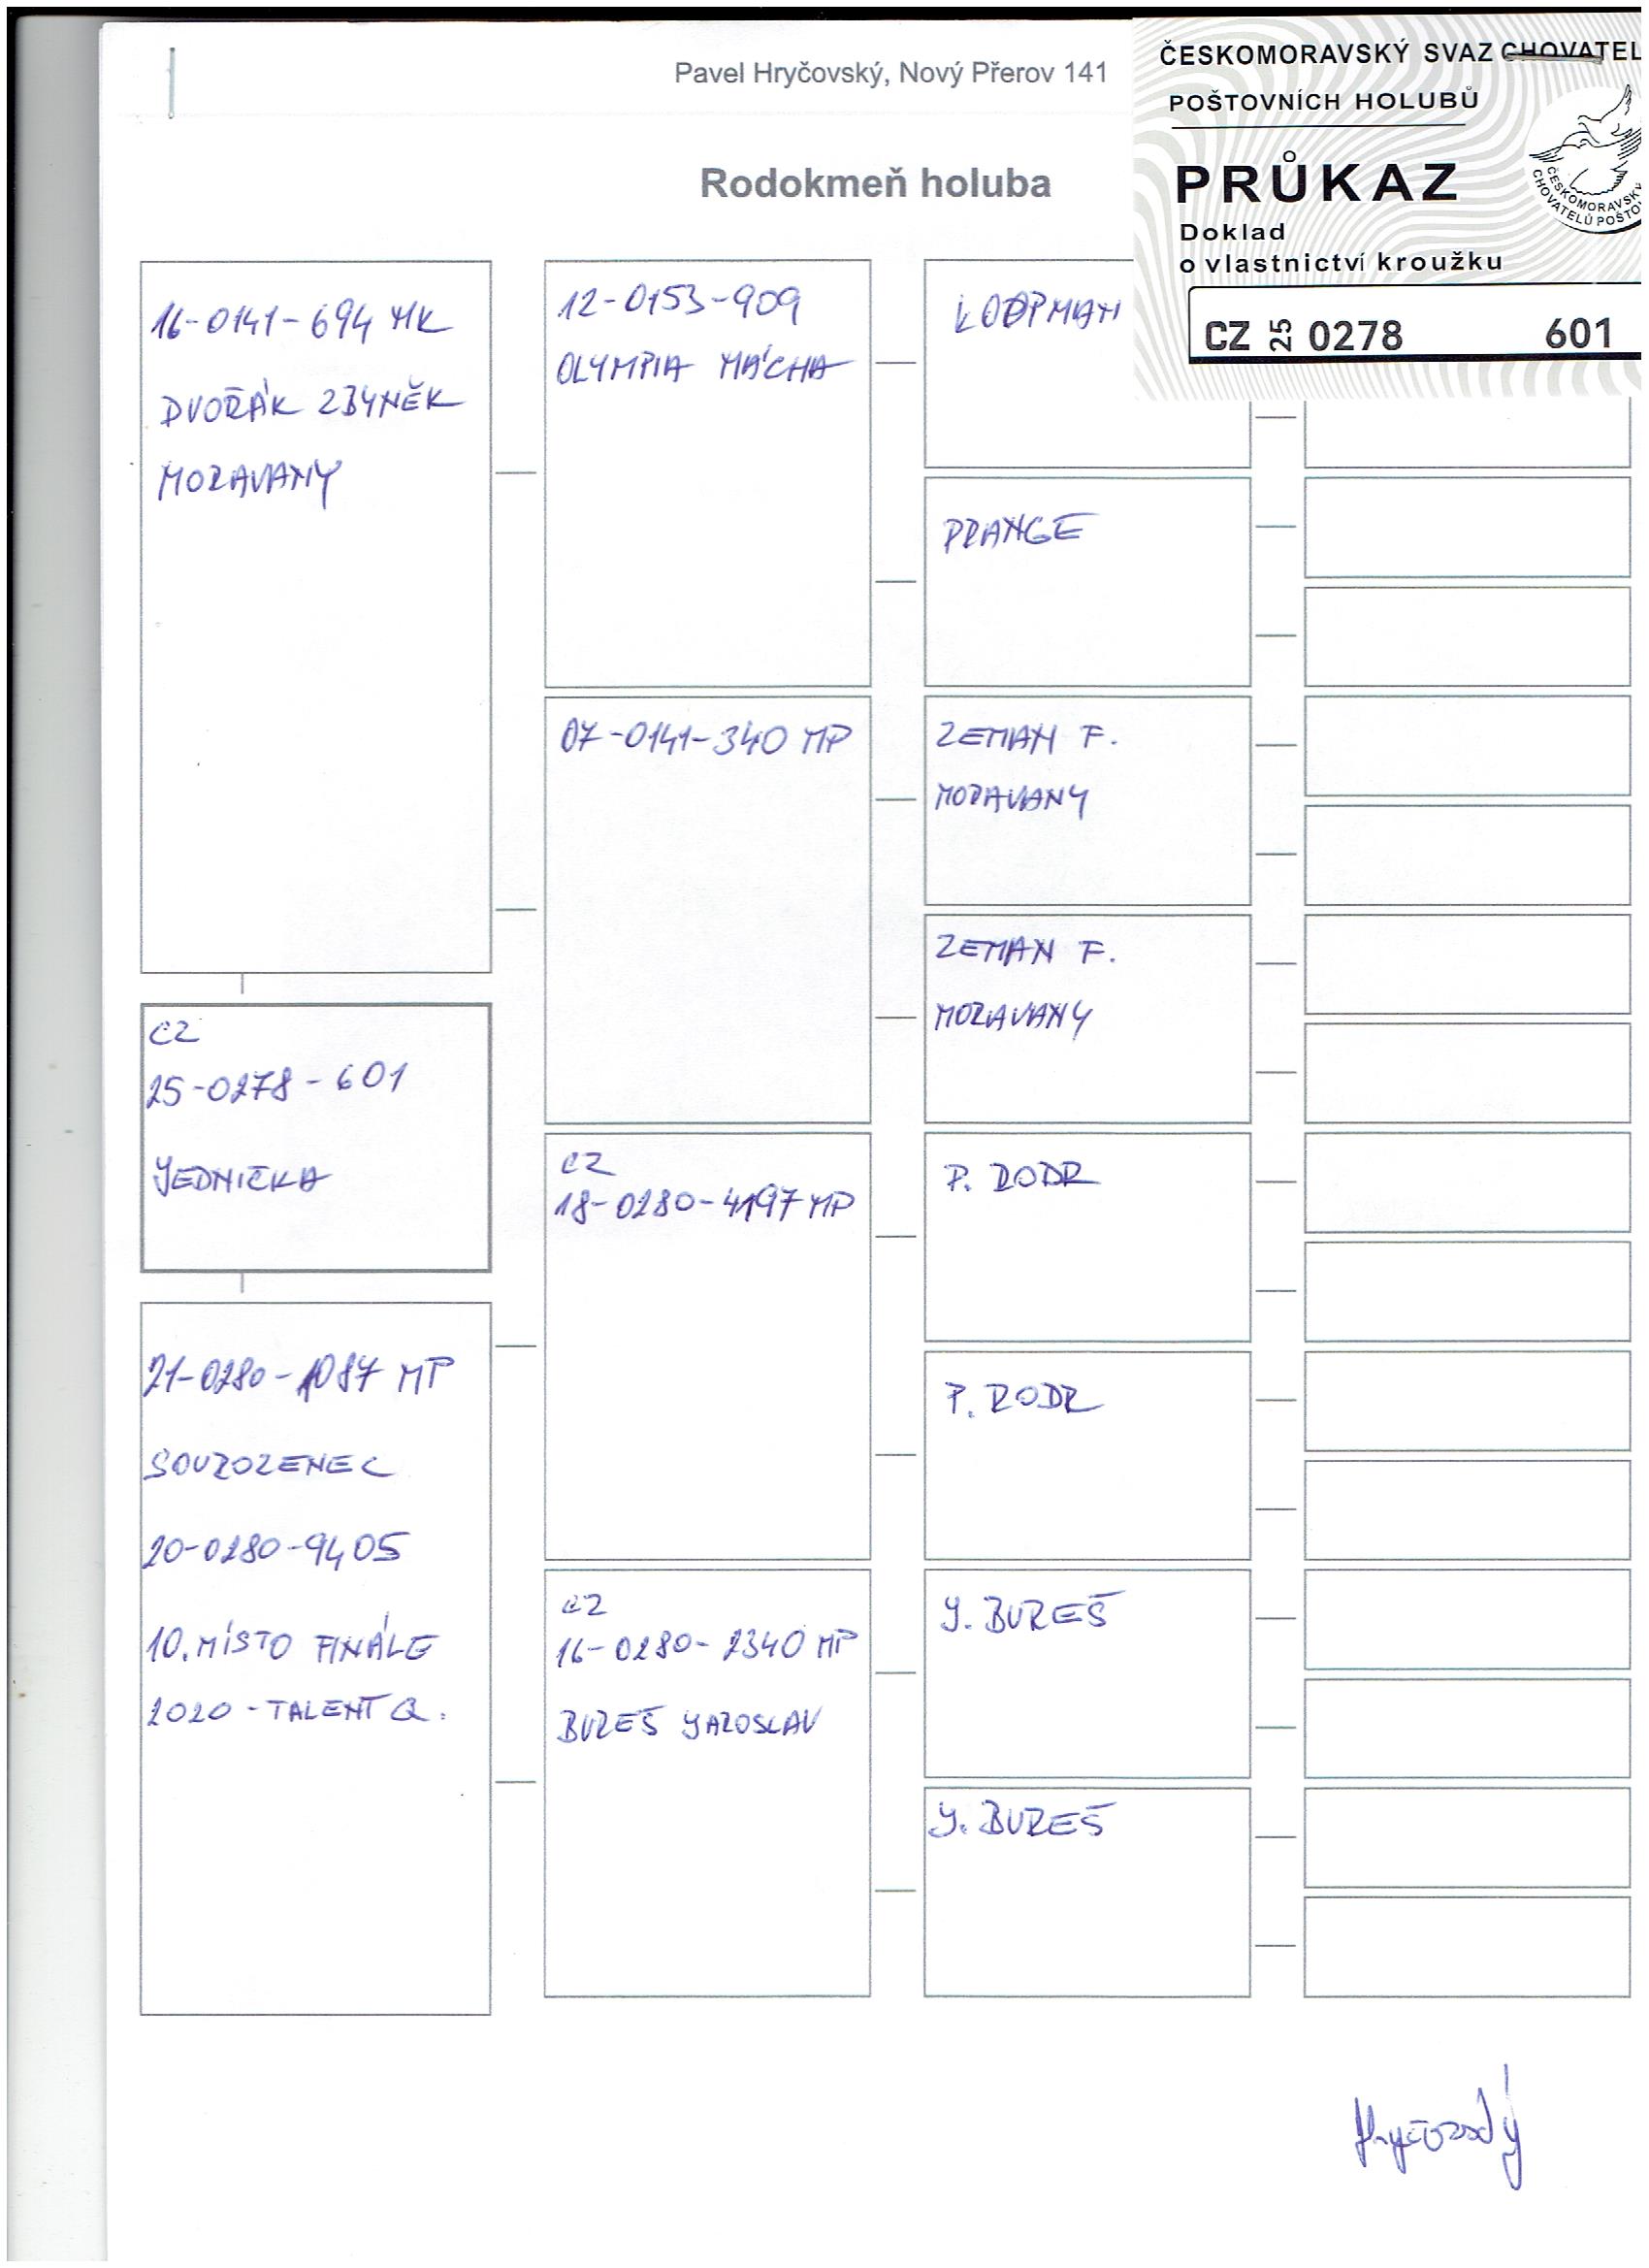 Pavel Hryčovský, Nový Přerov 141
Rodokmeň holuba
ČESKOMORAVSKÝ SVAZ CHOVATEL
POŠTOVNÍCH HOLUBŮ
PRŮKAZ
Doklad
o vlastnictví kroužku
CZ 25 0278 601
ČESKOMORAVSK
CHOVATELŮ POŠTO
16-0141-694 MK
DVOŘÁK ZBYNĚK
MORAVANY
CZ
25-0278-601
JEDNIČKA
21-0280-1087 MP
SOUROZENEC
20-0280-9405
10. MÍSTO FINÁLE
2020 - TALENT Q.
12-0153-909
OLYMPIA MÁCHA
07-0141-340 MP
CZ
18-0280-4197 MP
CZ
16-0280-2340 MP
BUREŠ JAROSLAV
KOOPMAN
PRANGE
ZEMAN F.
MORAVANY
ZEMAN F.
MORAVANY
P. RODR
P. RODR
J. BUREŠ
J. BUREŠ
Hryčovský